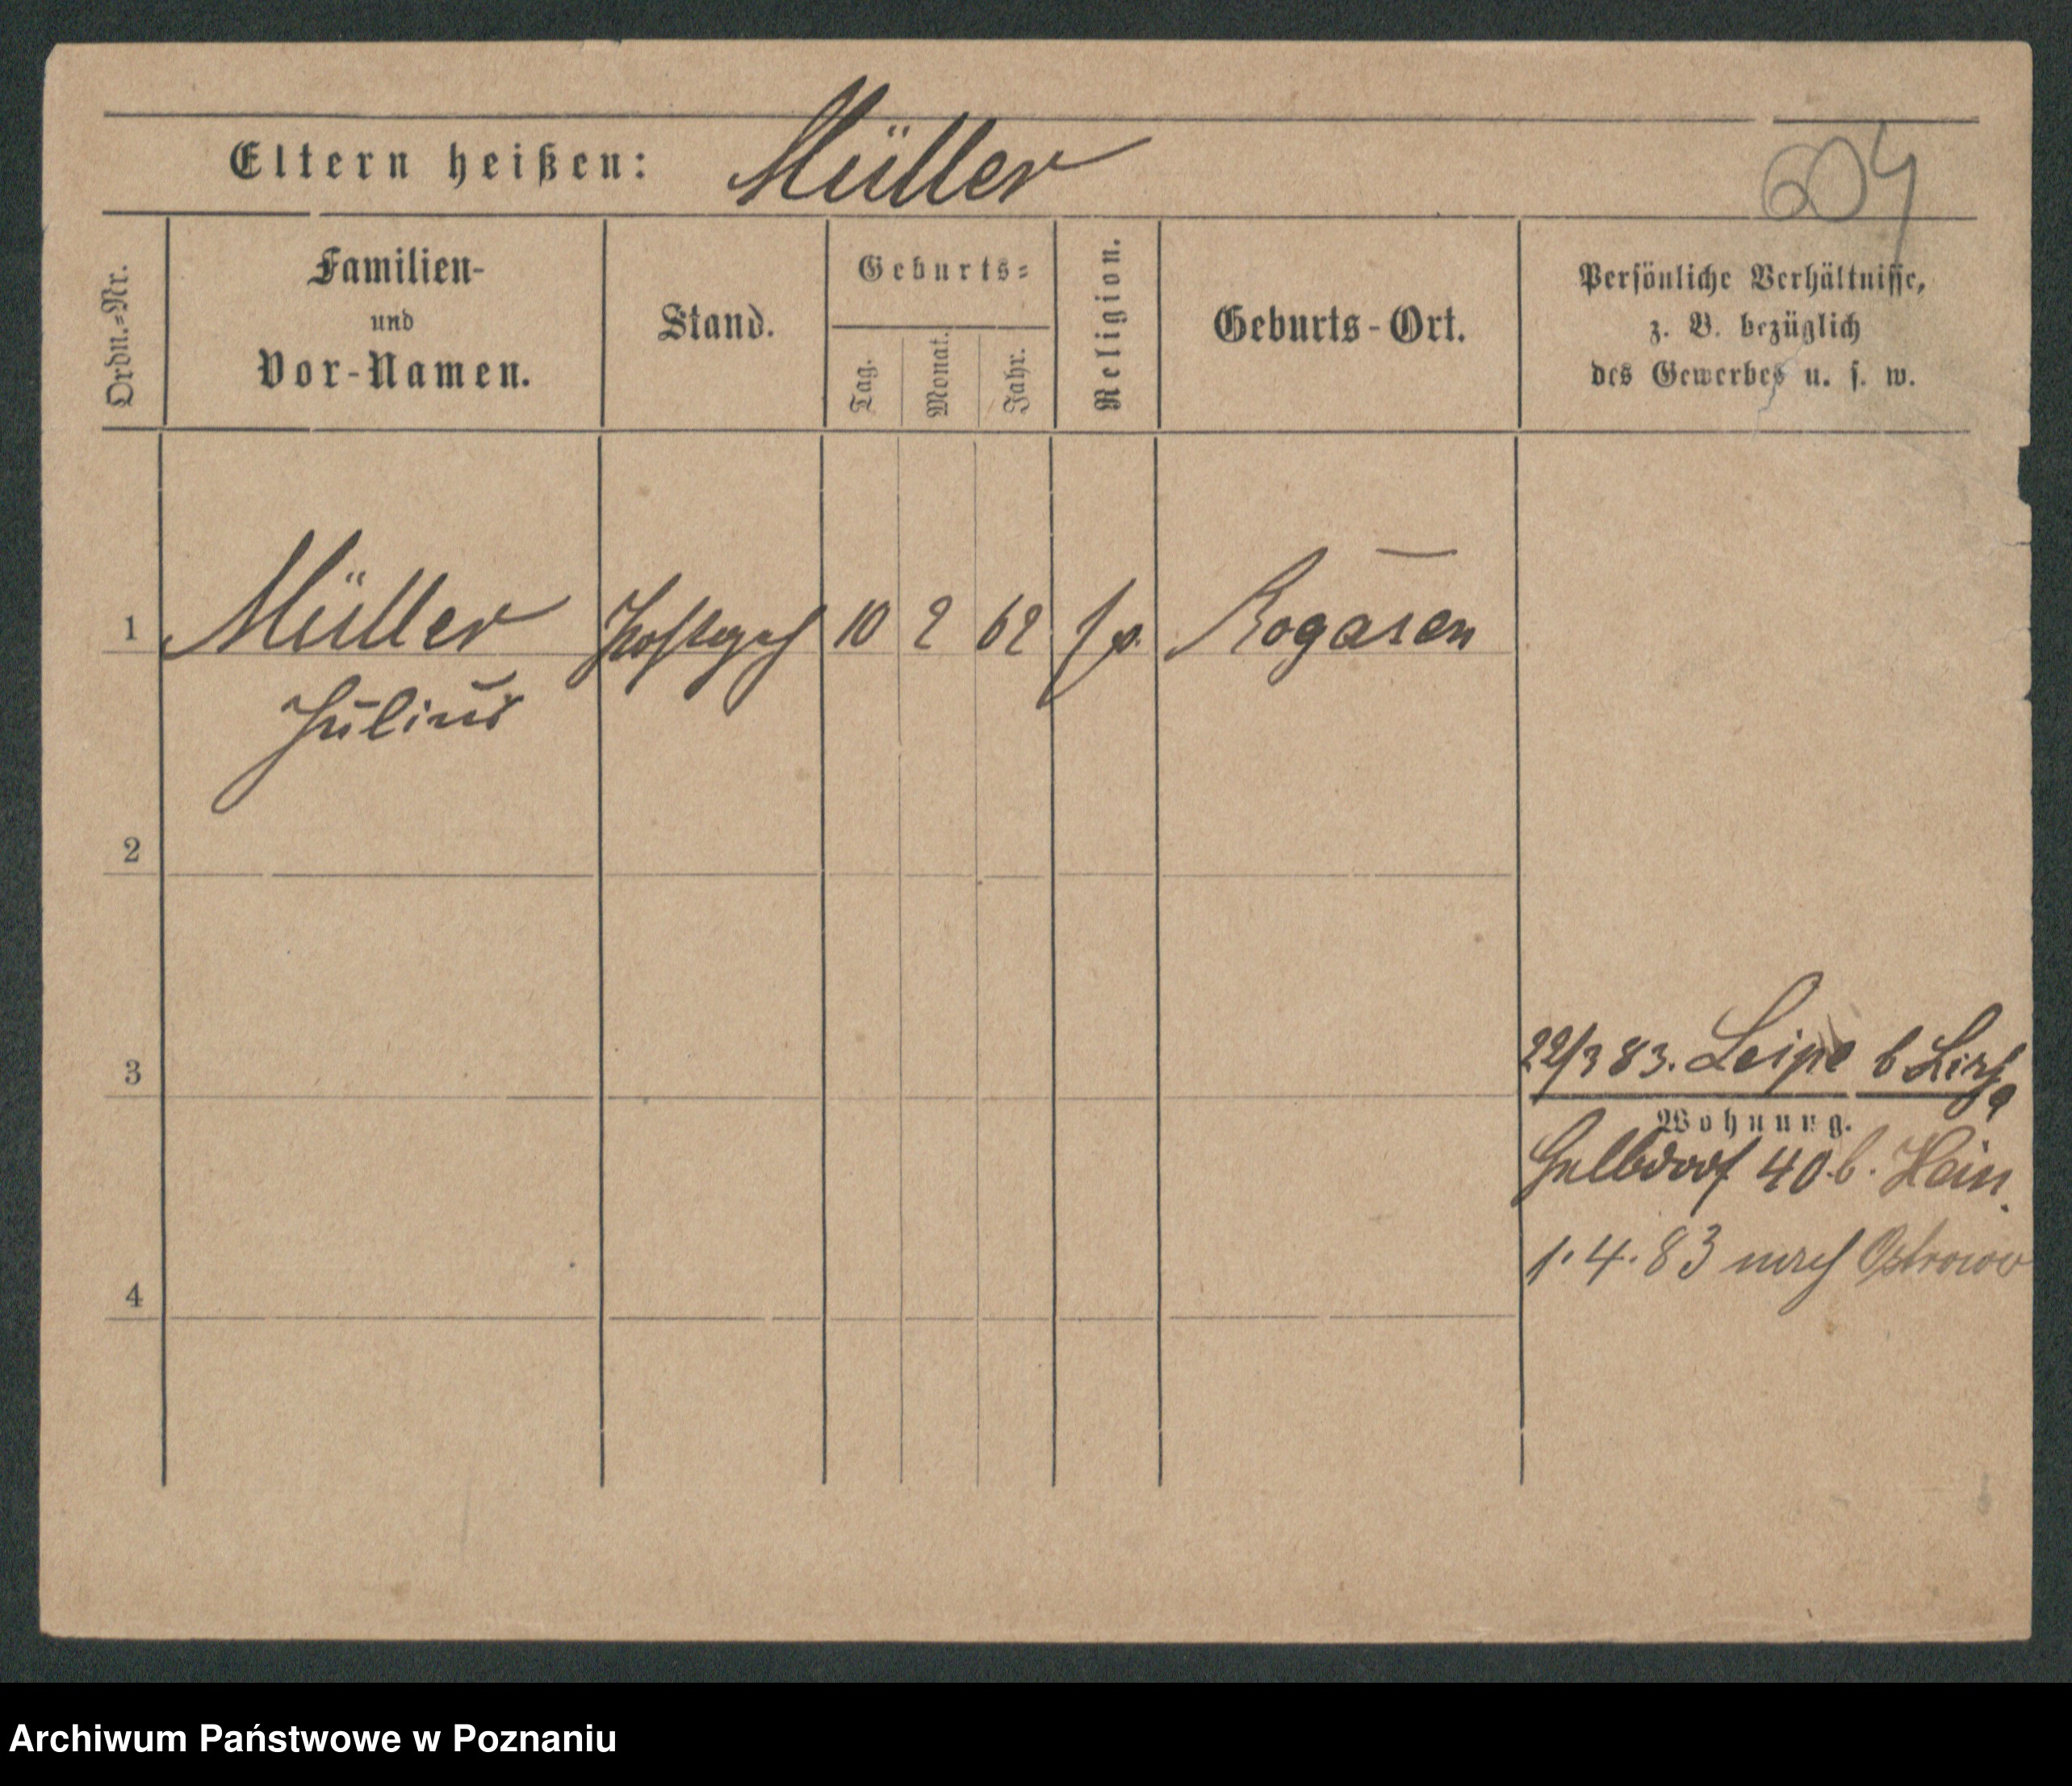 Eltern heißen: Müller
604
Ordn.=Nr.
Familien-
und
Vor-Namen.
Stand.
Geburts=
Tag.
Monat.
Jahr.
Religion.
Geburts-Ort.
Persönliche Verhältnisse,
z. B. bezüglich
des Gewerbes u. s. w.
1 Müller 10 2 62 Rogasen
Julius
2
3
22/3 83. Leipe b
Wohnung.
40 b. Hein
4
1.4.83 nach Ostrowo
Archiwum Państwowe w Poznaniu